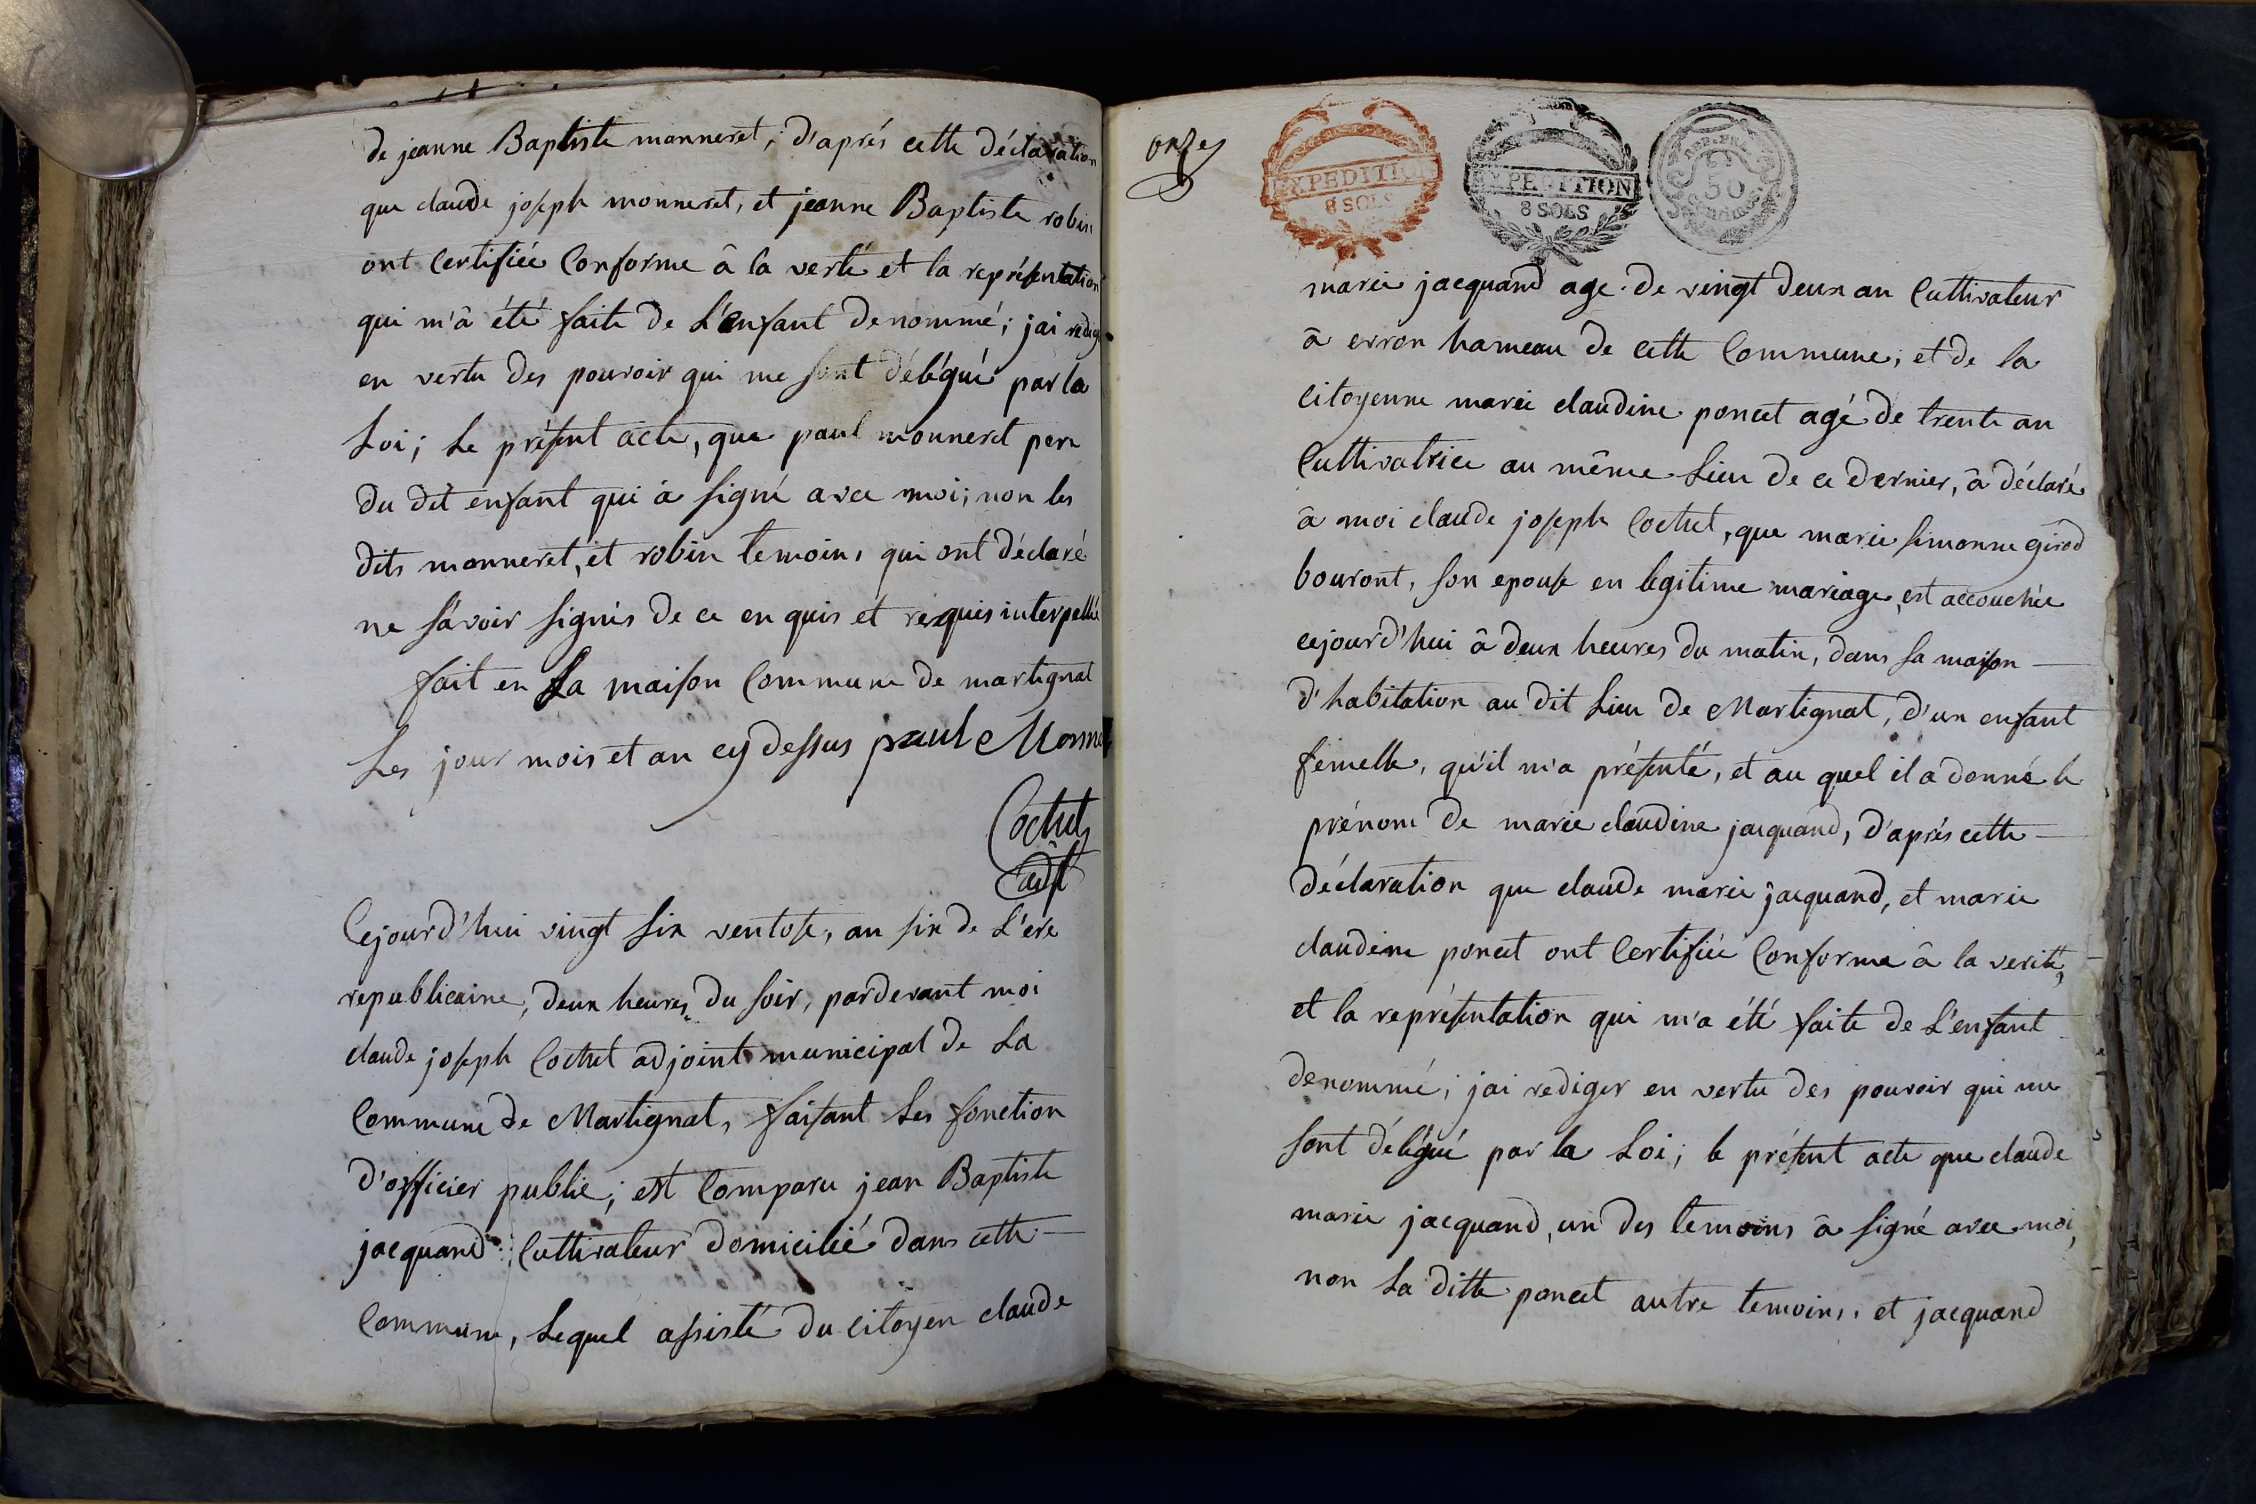 de jeanne Baptiste monneret, d'aprés cette déclaration
que claude joseph monneret, et jeanne Baptiste robin
ont Certifiée Conforme â la verté et la représentation
qui m'â été faite de L'enfant denommé; jai redig
en vertu des pouvoir qui me sont délégué par la
Loi; Le présent acte, que paul monneret pere
du dit enfant qui â signé avec moi; non les
dits monneret, et robin temoins qui ont déclaré
ne sávoir signés de ce en quis et requis interpellé
fait en La maison Commune de martignat
Les jour mois et an cy dessus paul Monne
Cochet
adjt
Cejourd'hui vingt six ventose, an six de L'ere
republicaine, deux heures du soir, pardevant moi
claude joseph Cochet adjoint municipal de La
Commune de Martignat, faisant Les fonction
d'officier public; est Comparu jean Baptiste
jacquand Cultivateur domicilié dans cette
Commune, Lequel assisté du citoyen claude
onze
EXPEDITION
8 SOLS
EXPEDITION
8 SOLS
REP. FRA
50
Centimes
marie jacquand age de vingt deux an Cultivateur
â erron hameau de cette Commune, et de la
Citoyenne marie claudine poncet agé de trente an
Cultivatrice au même Lieu de ce dernier, â déclaré
â moi claude joseph Cochet, que marie simonne girod
bouront, son epouse en legitime mariage, est accouchée
cejourd'hui â deux heures du matin, dans sa maison
d'habitation au dit Lieu de Martignat, d'un enfant
femelle, qu'il m'a présenté, et au quel il a donné le
prénom de marie claudine jacquand, d'aprés cette
déclaration que claude marie jacquand, et marie
claudine poncet ont Certifiée Conforme â la verité,
et la représentation qui m'a été faite de L'enfant
denommé; jai rediger en vertu des pouvoir qui me
sont délégué par la Loi; le présent acte que claude
marie jacquand, un des temoins â signé avec moi,
non La ditte poncet autre temoins, et jacquand